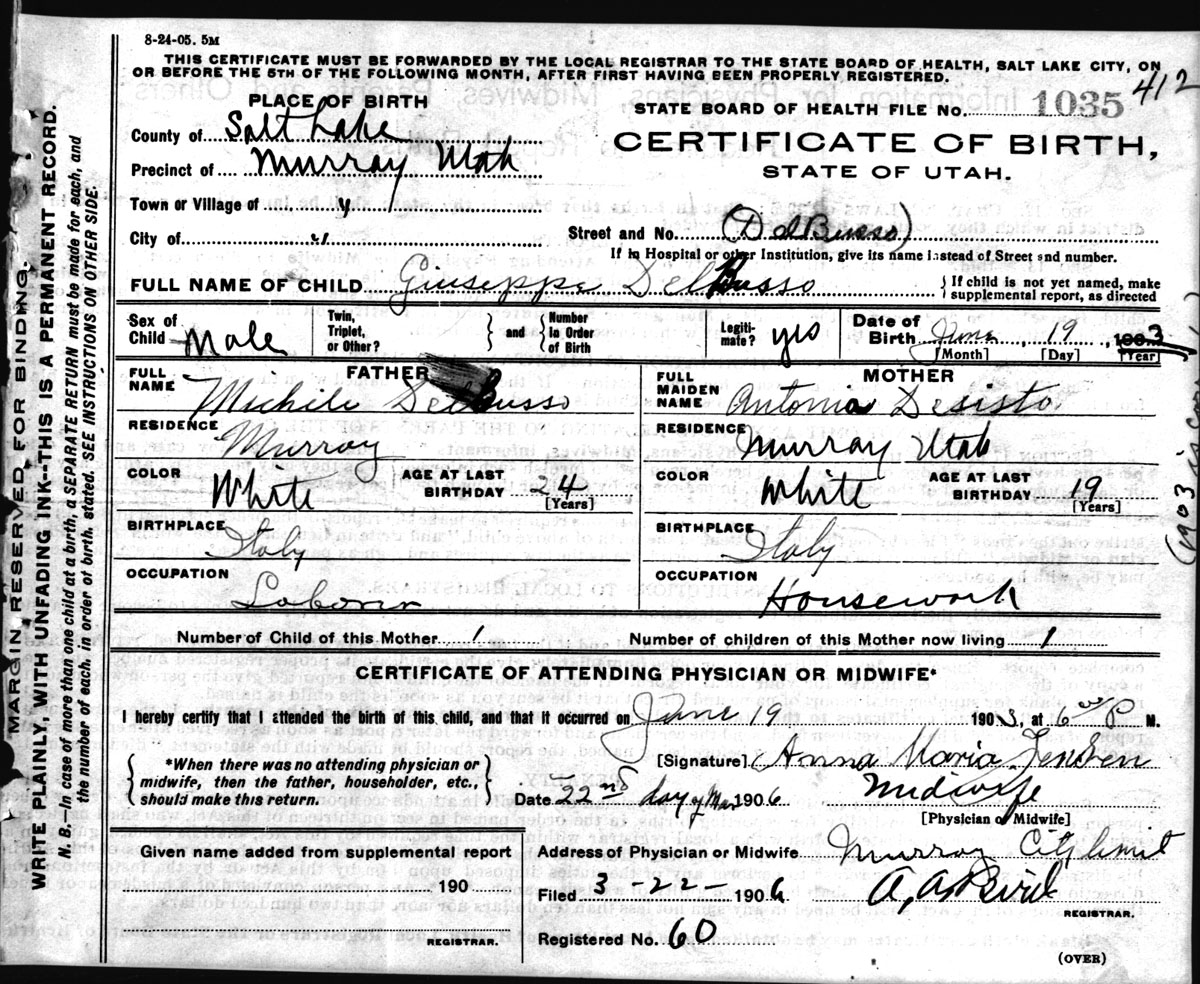 8-24-05. 5M
THIS CERTIFICATE MUST BE FORWARDED BY THE LOCAL REGISTRAR TO THE STATE BOARD OF HEALTH, SALT LAKE CITY, ON
OR BEFORE THE 5TH OF THE FOLLOWING MONTH, AFTER FIRST HAVING BEEN PROPERLY REGISTERED.
412
PLACE OF BIRTH
County of Salt Lake
Precinct of Murray Utah
Town or Village of "
City of "
STATE BOARD OF HEALTH FILE No. 1035
CERTIFICATE OF BIRTH,
STATE OF UTAH.
Street and No. (DelBusso)
If in Hospital or other Institution, give its name instead of Street and number.
FULL NAME OF CHILD Giuseppe DelBusso } If child is not yet named, make supplemental report, as directed
Sex of Child Male
Twin, Triplet, or Other? } and { Number in Order of Birth
Legitimate? yes
Date of Birth June 19, 1903
[Month] [Day] [Year]
FATHER
FULL NAME Michele DelBusso
RESIDENCE Murray
COLOR White AGE AT LAST BIRTHDAY 24 [Years]
BIRTHPLACE Italy
OCCUPATION Laborer
MOTHER
FULL MAIDEN NAME Antonia Desisto
RESIDENCE Murray Utah
COLOR White AGE AT LAST BIRTHDAY 19 [Years]
BIRTHPLACE Italy
OCCUPATION Housework
Number of Child of this Mother 1 Number of children of this Mother now living 1
CERTIFICATE OF ATTENDING PHYSICIAN OR MIDWIFE*
I hereby certify that I attended the birth of this child, and that it occurred on June 19 1903, at 6 00 P M.
{ *When there was no attending physician or midwife, then the father, householder, etc., should make this return. }
[Signature] Anna Maria Jensen
Date 22nd day of Mar 1906 Midwife
[Physician or Midwife]
Given name added from supplemental report
190
REGISTRAR.
Address of Physician or Midwife Murray City limit
Filed 3 - 22 - 1906 A. A. Bird
REGISTRAR.
Registered No. 60
(OVER)
MARGIN RESERVED FOR BINDING.
WRITE PLAINLY, WITH UNFADING INK--THIS IS A PERMANENT RECORD.
N. B.—In case of more than one child at a birth, a SEPARATE RETURN must be made for each, and
the number of each, in order of birth, stated. SEE INSTRUCTIONS ON OTHER SIDE.
(1903